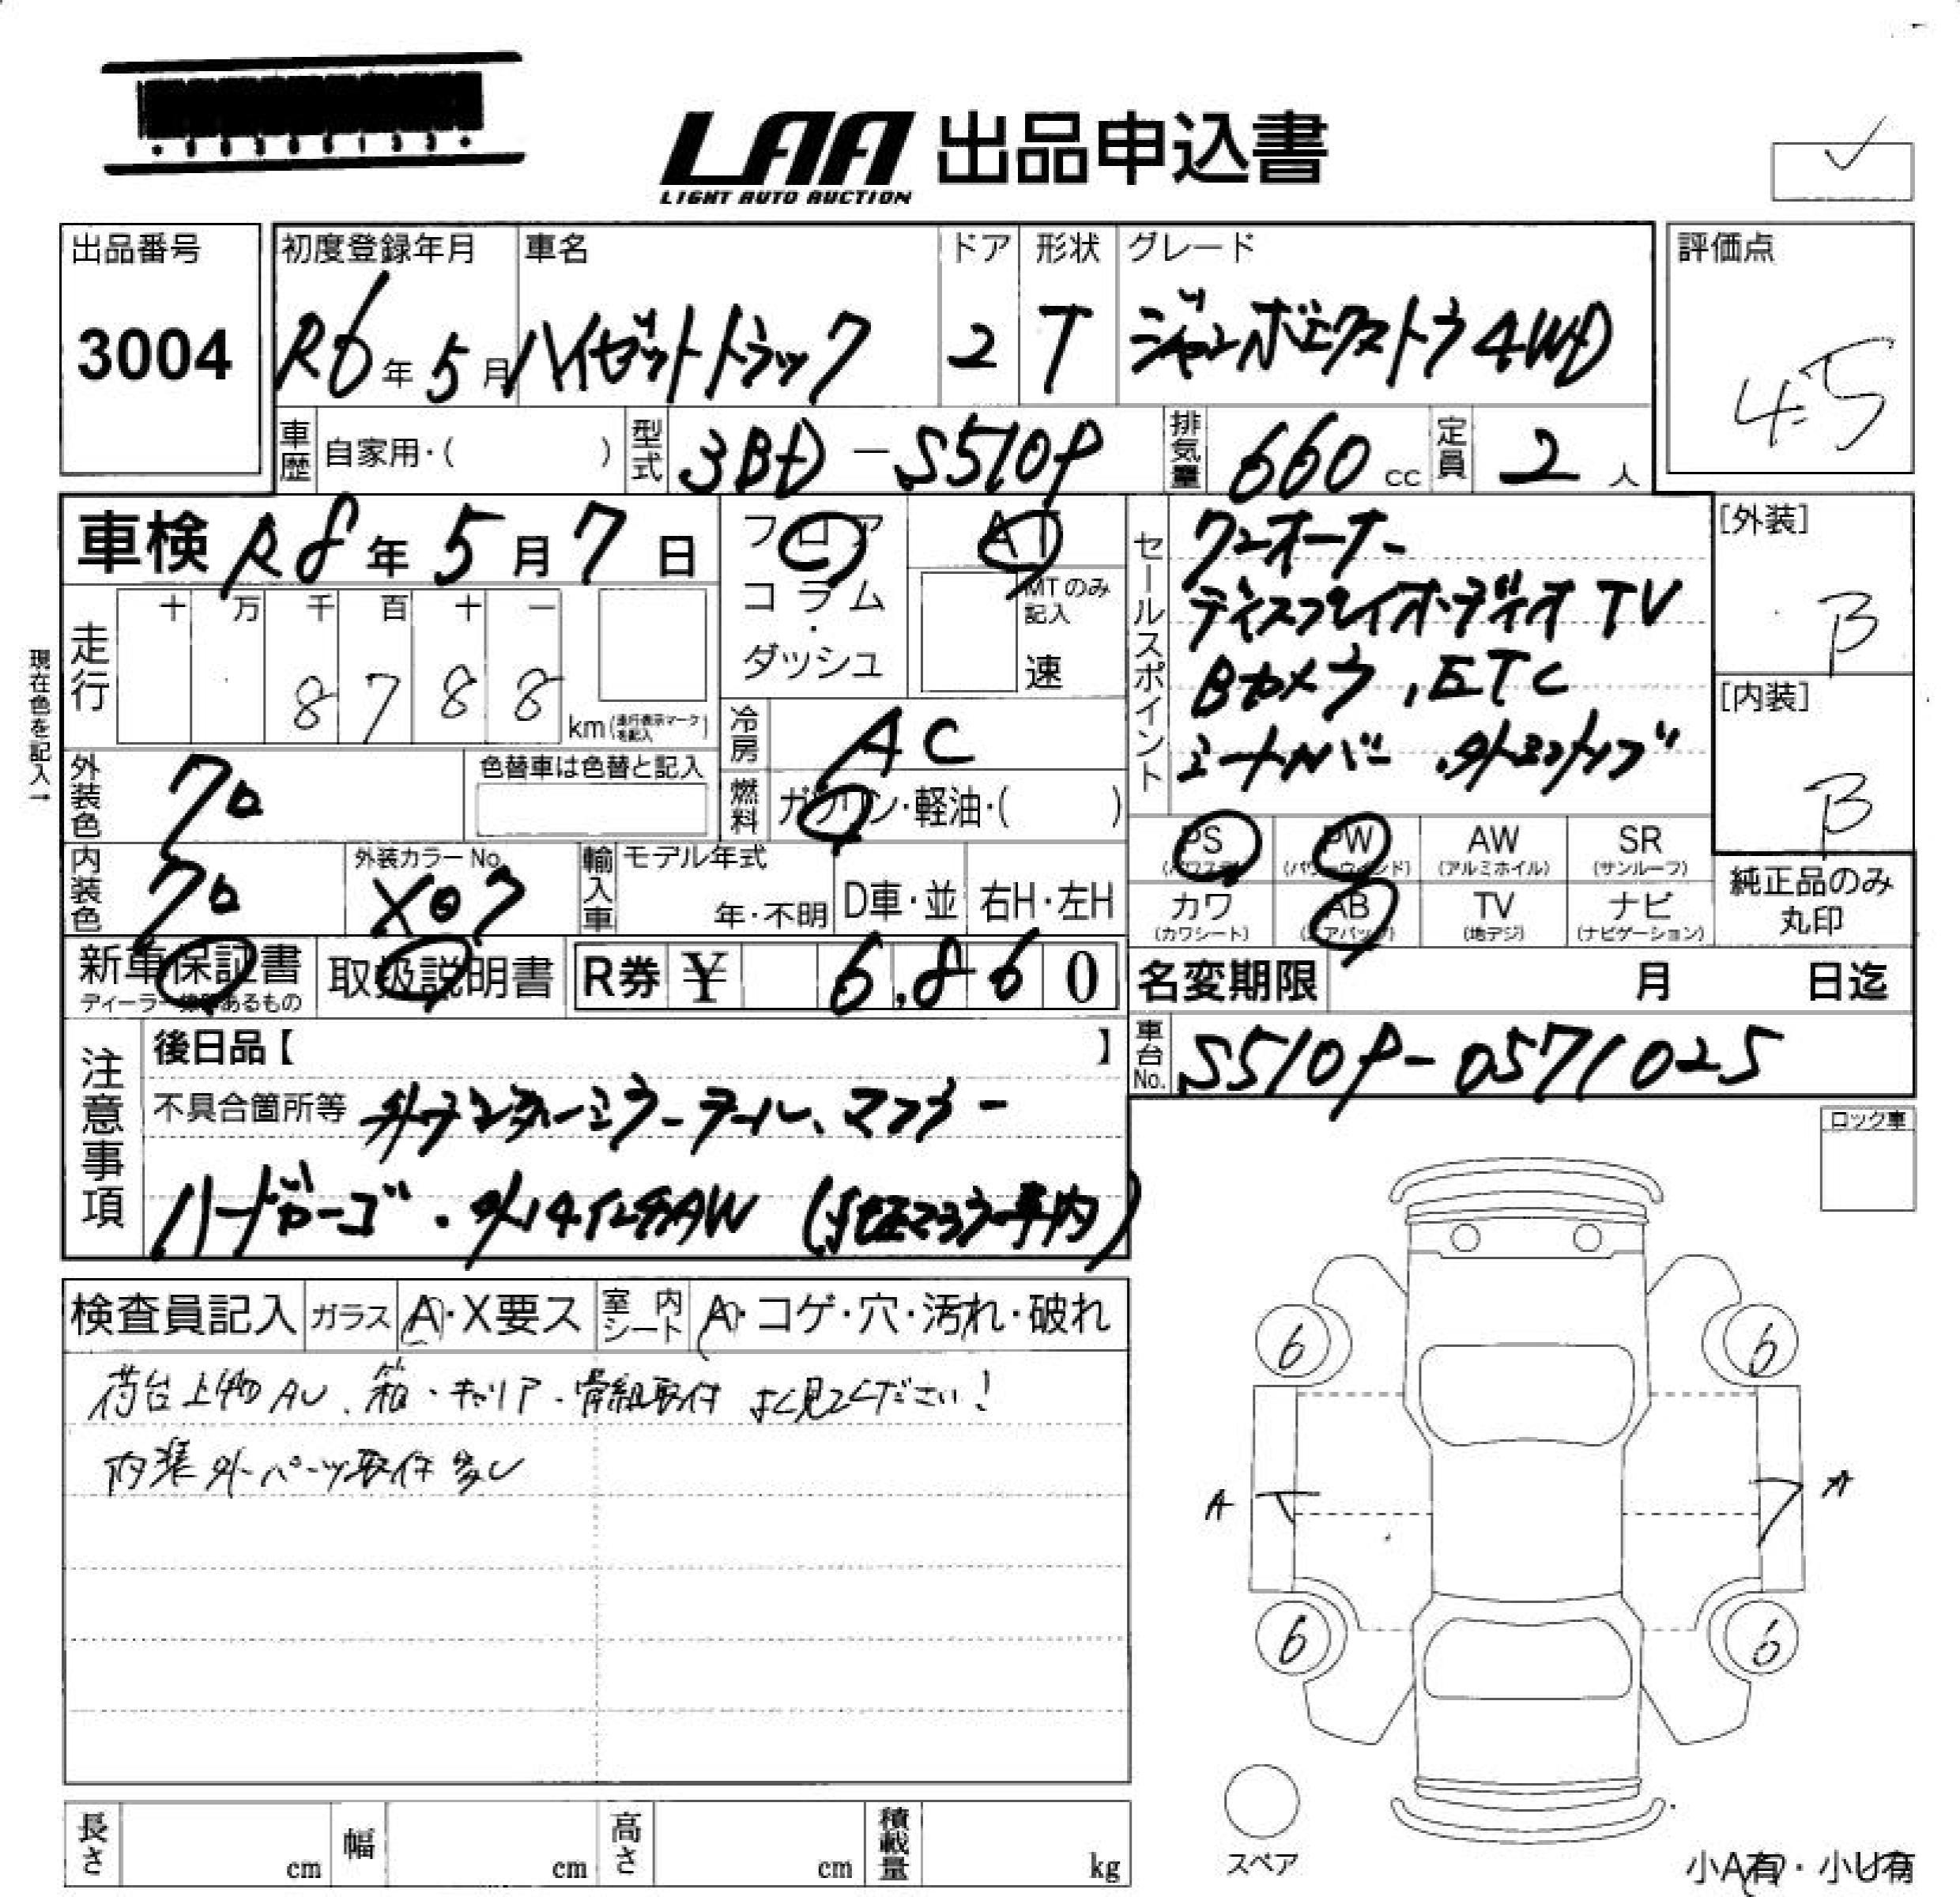 LAA 出品申込書
LIGHT AUTO AUCTION
出品番号
3004
初度登録年月
R6年5月
車名
ハイゼットトラック
ドア
2
形状
T
グレード
ジャンボエクストラ4WD
評価点
4.5
車歴 自家用・( )
型式 3BD-S510P
排気量 660cc
定員 2人
車検 R8年5月7日
フロア
コラム
・
ダッシュ
AT
MTのみ記入
速
現在色を記入→
走行
十 万 千 百 十 一
8788
km(走行表示マークを記入)
冷房 AC
燃料 ガソリン・軽油・( )
外装色 クロ
色替車は色替と記入
内装色 クロ
外装カラーNo.
X07
輸入車
モデル年式
年・不明
D車・並
右H・左H
セールスポイント
ワンオーナー
ディスプレイオーディオTV
Bカメラ,ETC
[外装]
B
[内装]
B
PS
(パワステ)
PW
(パワーウインド)
AW
(アルミホイル)
SR
(サンルーフ)
カワ
(カワシート)
AB
(エアバッグ)
TV
(地デジ)
ナビ
(ナビゲーション)
純正品のみ
丸印
新車保証書
取扱説明書
R券 ¥ 6,860
名変期限 月 日迄
車台No. S510P-0571025
注意事項
後日品【 】
不具合箇所等 外アンダーミラーテール、マフラー
ハードカーゴ・外14インチAW(純正マフラー車内)
ロック車
検査員記入
ガラス A・X要ス
室内シート A・コゲ・穴・汚れ・破れ
荷台上物AU、箱・キャリア・骨組取付 よく見てください!
内装外パーツ取付多し
6
6
A
A
6
6
スペア
長さ cm
幅 cm
高さ cm
積載量 kg
小A有・小U有